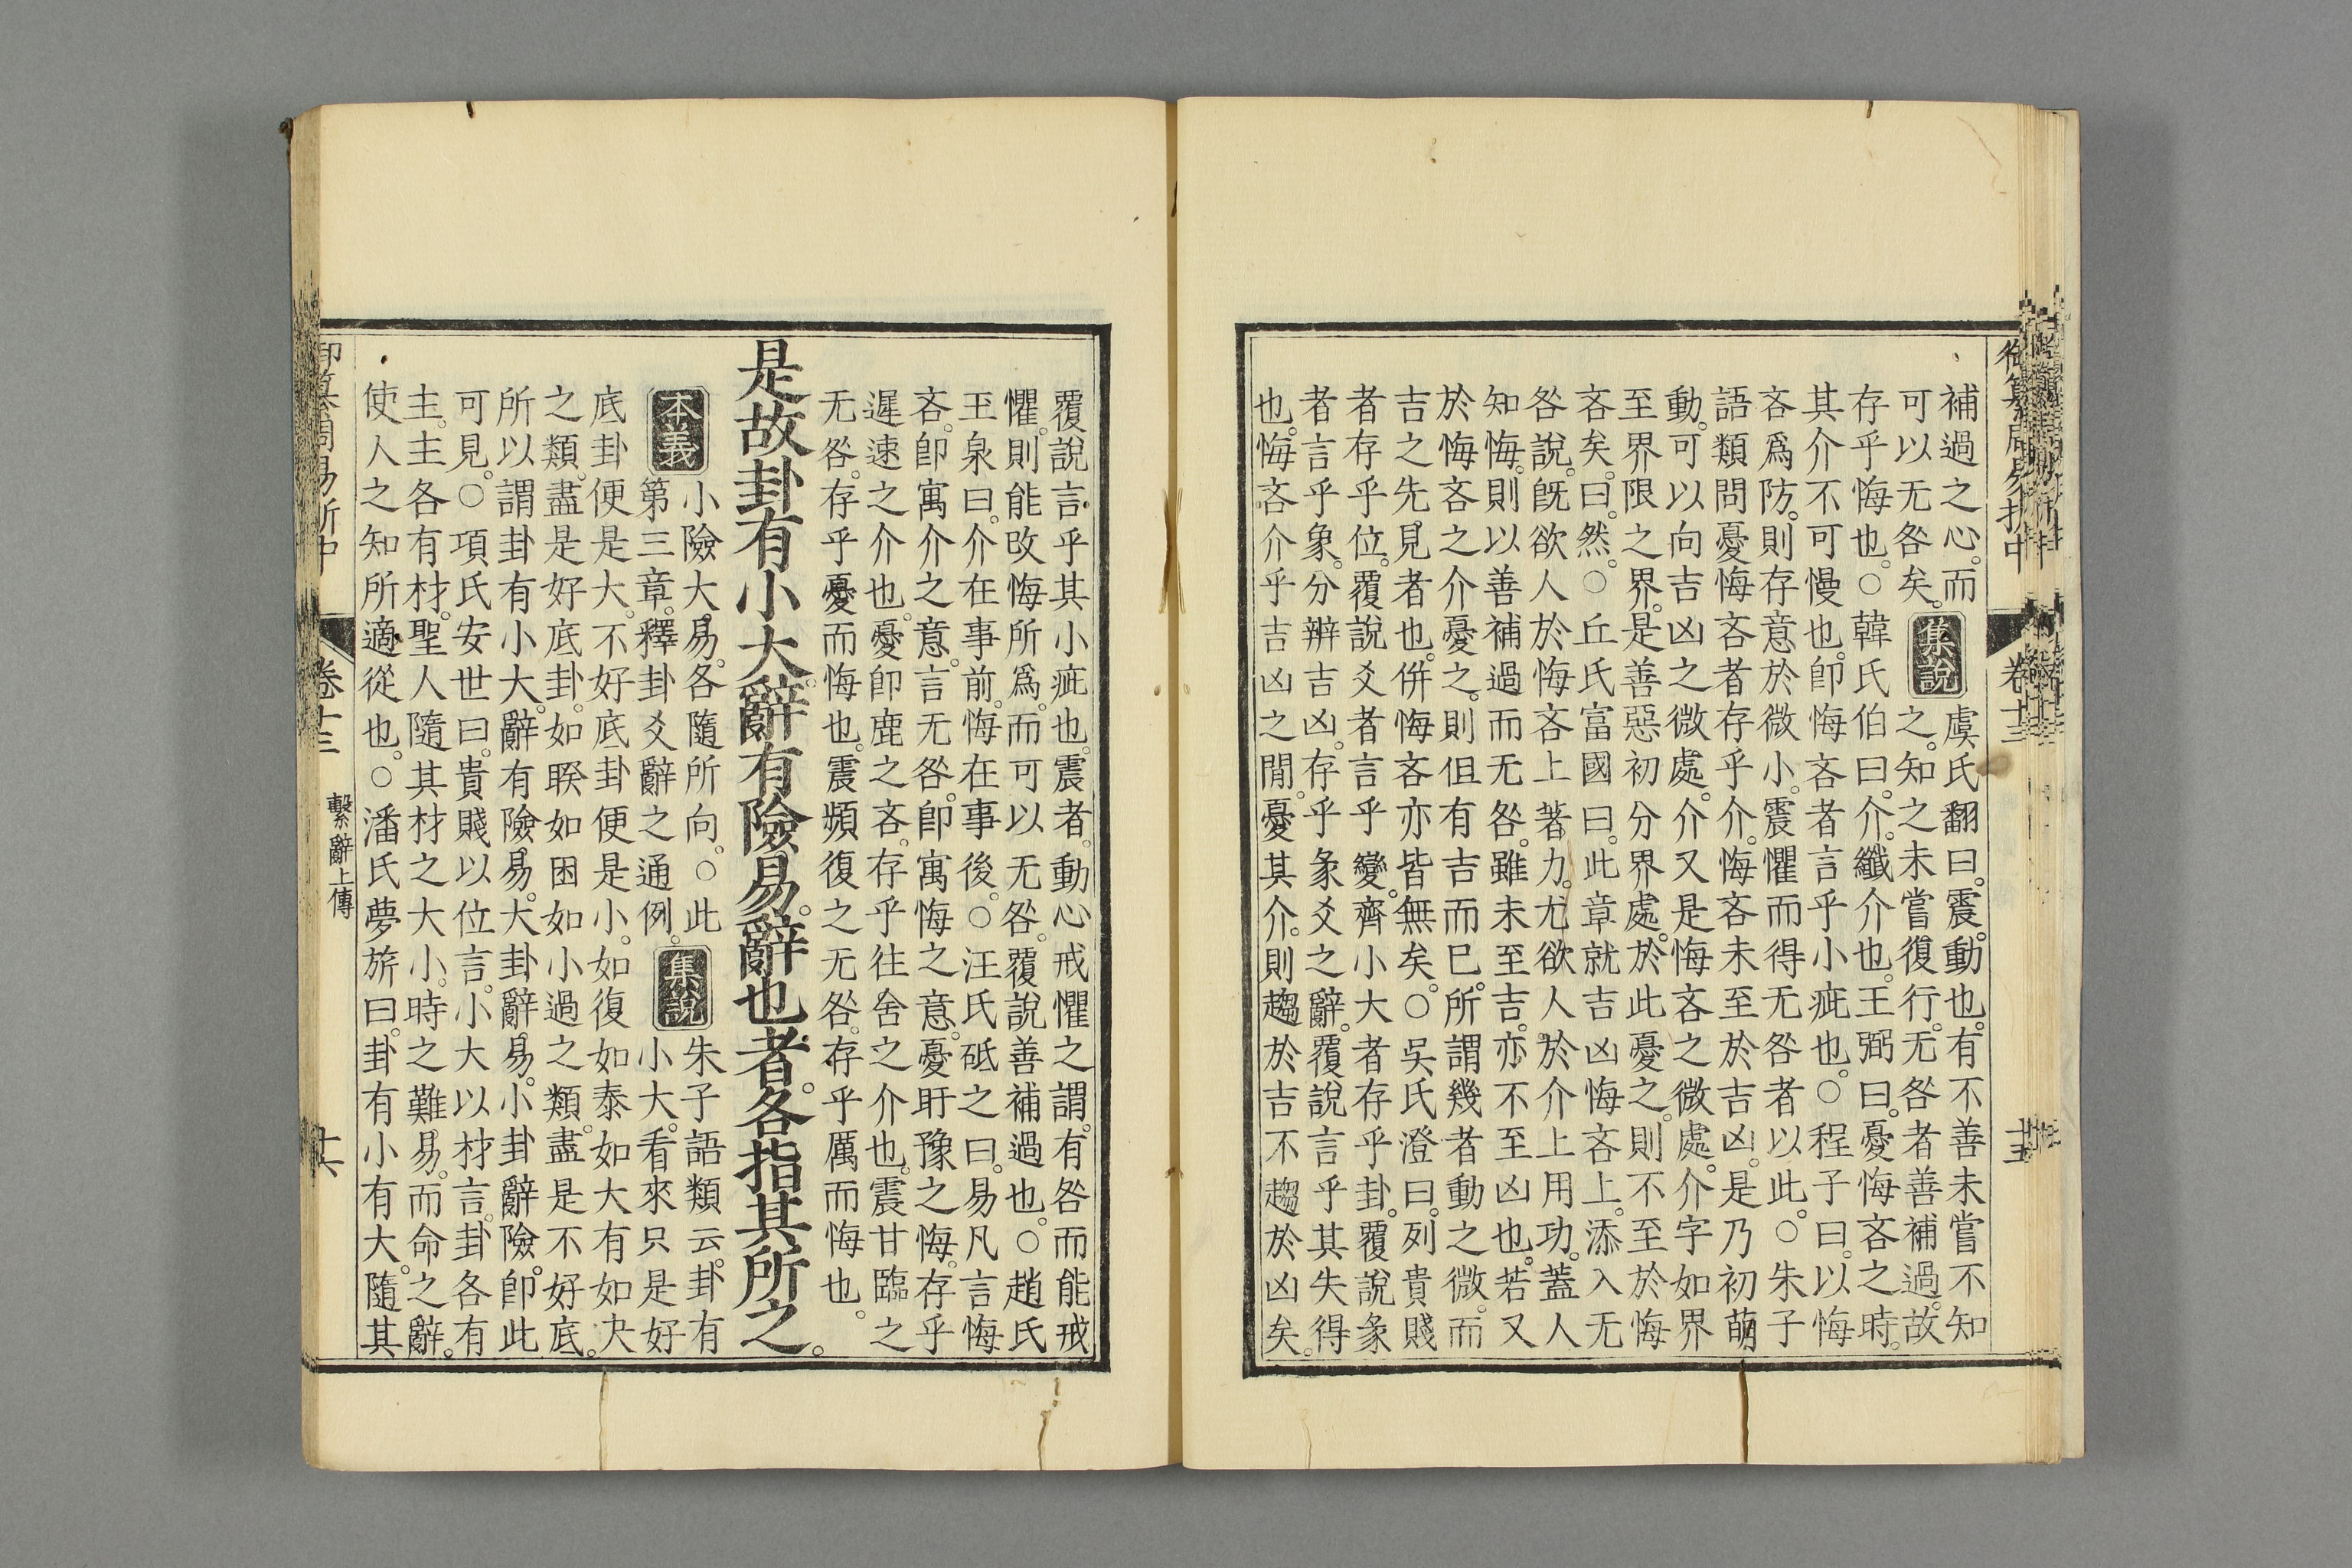 御纂周易折中 卷十三 十五
補過之心。而
可以无咎矣。
集說
虞氏翻曰。震。動也。有不善未嘗不知
之。知之未嘗復行。无咎者善補過。故
存乎悔也。○韓氏伯曰。介。纖介也。王弼曰。憂悔吝之時。
其介不可慢也。卽悔吝者言乎小疵也。○程子曰。以悔
吝爲防。則存意於微小。震懼而得无咎者以此。○朱子
語類問憂悔吝者存乎介。悔吝未至於吉凶。是乃初萌
動。可以向吉凶之微處。介又是悔吝之微處。介字如界
至界限之界。是善惡初分界處。於此憂之。則不至於悔
吝矣。曰。然。○丘氏富國曰。此章就吉凶悔吝上。添入无
咎說。旣欲人於悔吝上著力。尤欲人於介上用功。蓋人
知悔。則以善補過而无咎。雖未至吉。亦不至凶也。若又
於悔吝之介憂之。則但有吉而已。所謂幾者動之微。而
吉之先見者也。併悔吝亦皆無矣。○吳氏澄曰。列貴賤
者存乎位。覆說爻者言乎變。齊小大者存乎卦。覆說彖
者言乎象。分辨吉凶。存乎彖爻之辭。覆說言乎其失得
也。悔吝介乎吉凶之閒。憂其介。則趨於吉不趨於凶矣。
覆說言乎其小疵也。震者。動心戒懼之謂。有咎而能戒
懼。則能改悔所爲。而可以无咎。覆說善補過也。○趙氏
玉泉曰。介在事前。悔在事後。○汪氏砥之曰。易凡言悔
吝。卽寓介之意。言无咎。卽寓悔之意。憂盱豫之悔。存乎
遲速之介也。憂卽鹿之吝。存乎往舍之介也。震甘臨之
无咎。存乎憂而悔也。震頻復之无咎。存乎厲而悔也。
是故卦有小大。辭有險易。辭也者。各指其所之。
本義
小險大易。各隨所向。○此
第三章。釋卦爻辭之通例。
集說
朱子語類云。卦有
小大。看來只是好
底卦便是大。不好底卦便是小。如復如泰如大有如夬
之類。盡是好底卦。如睽如困如小過之類。盡是不好底。
所以謂卦有小大。辭有險易。大卦辭易。小卦辭險。卽此
可見。○項氏安世曰。貴賤以位言。小大以材言。卦各有
主。主各有材。聖人隨其材之大小。時之難易。而命之辭。
使人之知所適從也。○潘氏夢旂曰。卦有小有大。隨其
御纂周易折中 卷十三 繫辭上傳 十六